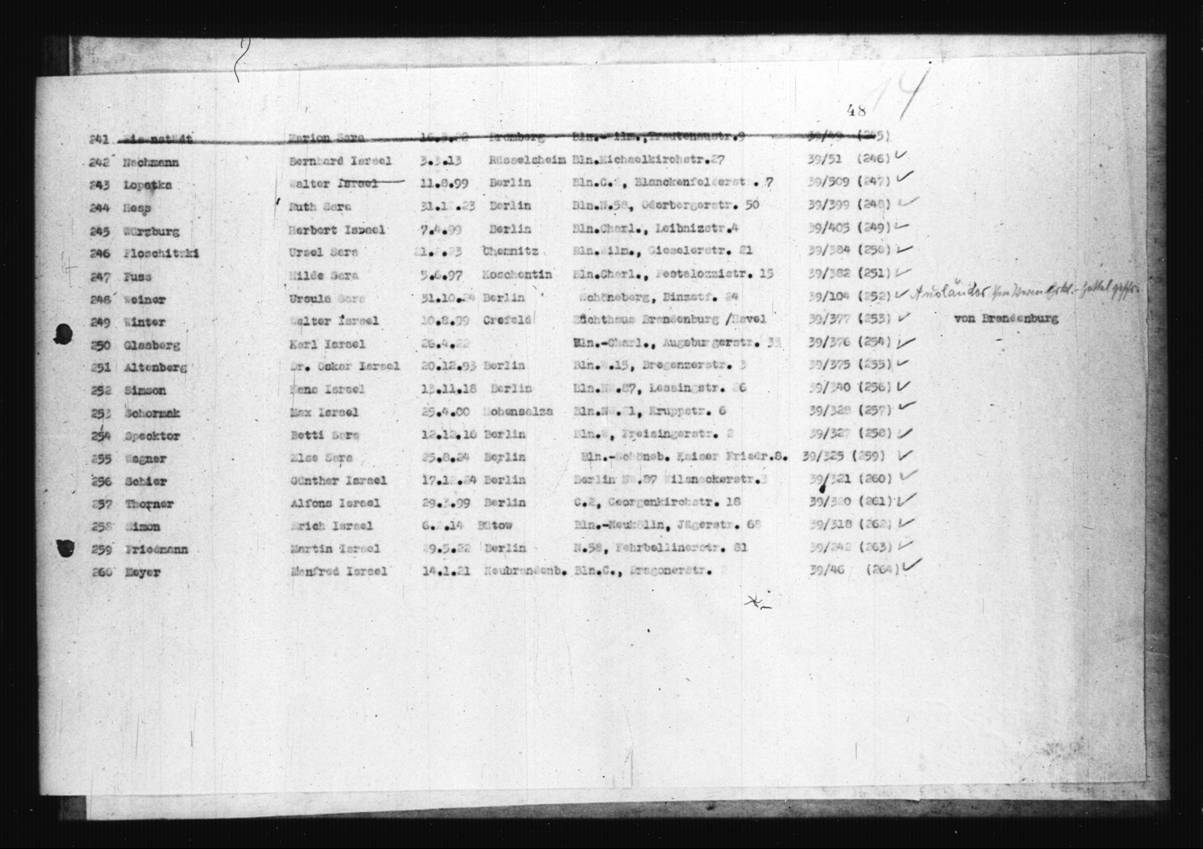 48 14
241 Marion Sara Bromberg 39/49 (245)
242 Nachmann Bernhard Israel 3.3.13 Rüsselsheim Bln.Michaelkirchstr.27 39/51 (246)
243 Lopatka Walter Israel 11.8.99 Berlin Bln.C.2, 7 39/509 (247)
244 Ruth Sara 31.12.23 Berlin Bln.N.58, Oderbergerstr. 50 39/399 (248)
245 Würzburg Herbert Israel 7.4.99 Berlin Bln.Charl., Leibnizstr.4 39/405 (249)
246 Ploschitzki Ursel Sara Chemnitz Bln.Wilm., Gieselerstr. 21 39/384 (250)
247 Fuss Hilde Sara 5.6.97 Koschentin Bln.Charl., Pestalozzistr. 15 39/382 (251)
248 Weiner Ursula Sara 31.10.24 Berlin Schöneberg, 24 39/104 (252) Ausländer
249 Winter Walter Israel 10.8.99 Crefeld Zuchthaus Brandenburg /Havel 39/377 (253) von Brandenburg
250 Glasberg Karl Israel 26.4.22 Bln.-Charl., Augsburgerstr. 39/376 (254)
251 Altenberg Dr. Oskar Israel 20.12.93 Berlin Bln.W.15, Bregenzerstr. 3 39/375 (255)
252 Simson Hans Israel 13.11.18 Berlin Bln.NW.87, Lessingstr. 39/340 (256)
253 Schormak Max Israel 25.4.00 Hohensalza Bln.NW.21, Kruppstr. 6 39/328 (257)
254 Specktor Betti Sara 12.12.16 Berlin Freisingerstr. 39/327 (258)
255 Wagner Else Sara 25.8.24 Berlin Bln.-Schöneb. Kaiser Friedr.8. 39/325 (259)
256 Schier Günther Israel 17.12.24 Berlin Berlin NW.87 Wilsnackerstr.3 39/321 (260)
257 Thorner Alfons Israel 29.3.99 Berlin C.2, Georgenkirchstr. 18 39/320 (261)
258 Simon Erich Israel 6.2.14 Bütow Bln.-Neukölln, Jägerstr. 68 39/318 (262)
259 Friedmann Martin Israel 29.5.22 Berlin N.58, Fehrbellinerstr. 81 39/242 (263)
260 Meyer Manfred Israel 14.1.21 Neubrandenb. Bln.C., Dragonerstr. 39/46 (264)